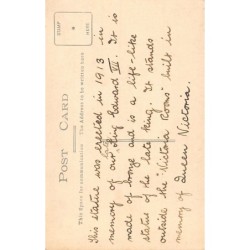 STAMP
HERE
POST CARD
This Space for communication.
The Address to be written here
This statue was erected in 1913 in
memory of our King Edward VII. It is
made of bronze and is a life-like
statue of the late King. It stands
outside the "Victoria Rooms" built in
memory of Queen Victoria.